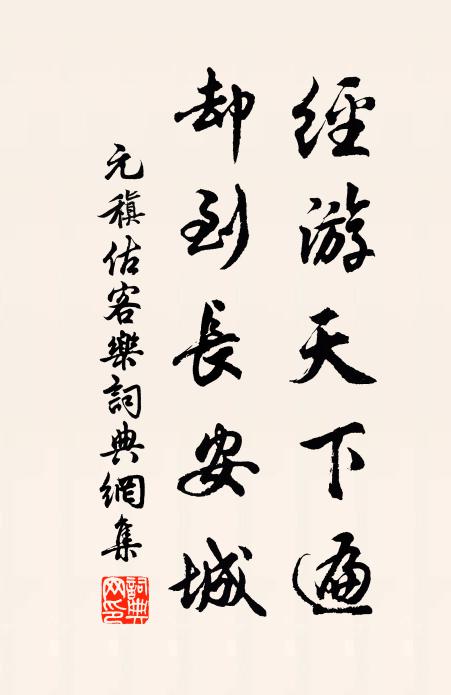 經游天下遍
却到長安城
元稹估客樂詞典網集
詞典
网印